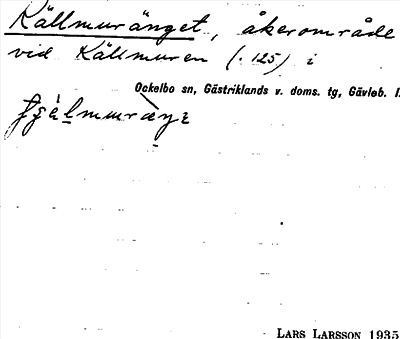 Källmuränget, åkerområde
vid Källmuren (. 125.) i
Ockelbo sn, Gästriklands v. doms. tg, Gävleb. l.
LARS LARSSON 1935